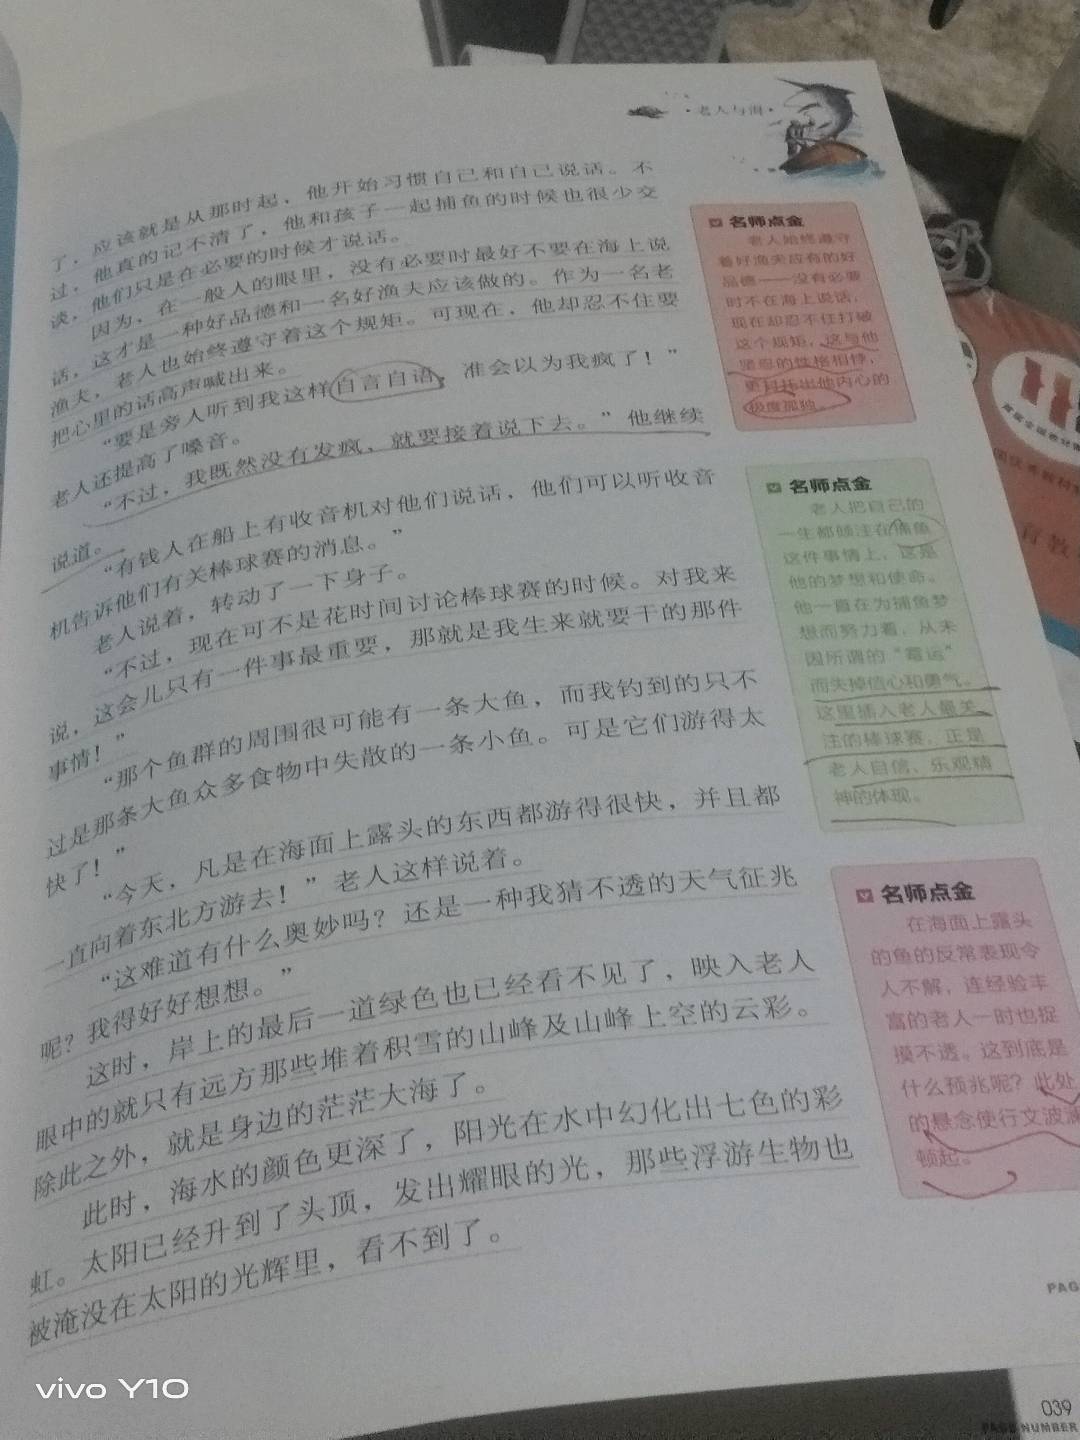 ·老人与海·
应该就是从那时起，他开始习惯自己和自己说话。不
了，他真的记不清了，他和孩子一起捕鱼的时候也很少交
过，他们只是在必要的时候才说话。
谈，因为，在一般人的眼里，没有必要时最好不要在海上说
话，这才是一种好品德和一名好渔夫应该做的。作为一名老
渔夫，老人也始终遵守着这个规矩。可现在，他却忍不住要
把心里的话高声喊出来。
“要是旁人听到我这样自言自语，准会以为我疯了！”
老人还提高了嗓音。
“不过，我既然没有发疯，就要接着说下去。”他继续
说道。
“有钱人在船上有收音机对他们说话，他们可以听收音
机告诉他们有关棒球赛的消息。”
老人说着，转动了一下身子。
“不过，现在可不是花时间讨论棒球赛的时候。对我来
说，这会儿只有一件事最重要，那就是我生来就要干的那件
事情！”
“那个鱼群的周围很可能有一条大鱼，而我钓到的只不
过是那条大鱼众多食物中失散的一条小鱼。可是它们游得太
快了！”
“今天，凡是在海面上露头的东西都游得很快，并且都
一直向着东北方游去！”老人这样说着。
“这难道有什么奥妙吗？还是一种我猜不透的天气征兆
呢？我得好好想想。”
这时，岸上的最后一道绿色也已经看不见了，映入老人
眼中的就只有远方那些堆着积雪的山峰及山峰上空的云彩。
除此之外，就是身边的茫茫大海了。
此时，海水的颜色更深了，阳光在水中幻化出七色的彩
虹。太阳已经升到了头顶，发出耀眼的光，那些浮游生物也
被淹没在太阳的光辉里，看不到了。
名师点金
老人始终遵守
着好渔夫应有的好
品德——没有必要
时不在海上说话，
现在却忍不住打破
这个规矩，这与他
坚忍的性格相悖，
更衬托出他内心的
极度孤独。
名师点金
老人把自己的
一生都倾注在捕鱼
这件事情上，这是
他的梦想和使命。
他一直在为捕鱼梦
想而努力着，从未
因所谓的“霉运”
而失掉信心和勇气。
这里插入老人最关
注的棒球赛，正是
老人自信、乐观精
神的体现。
名师点金
在海面上露头
的鱼的反常表现令
人不解，连经验丰
富的老人一时也捉
摸不透。这到底是
什么预兆呢？此处
的悬念使行文波澜
顿起。
PAG
039
PAGE NUMBER
vivo Y10